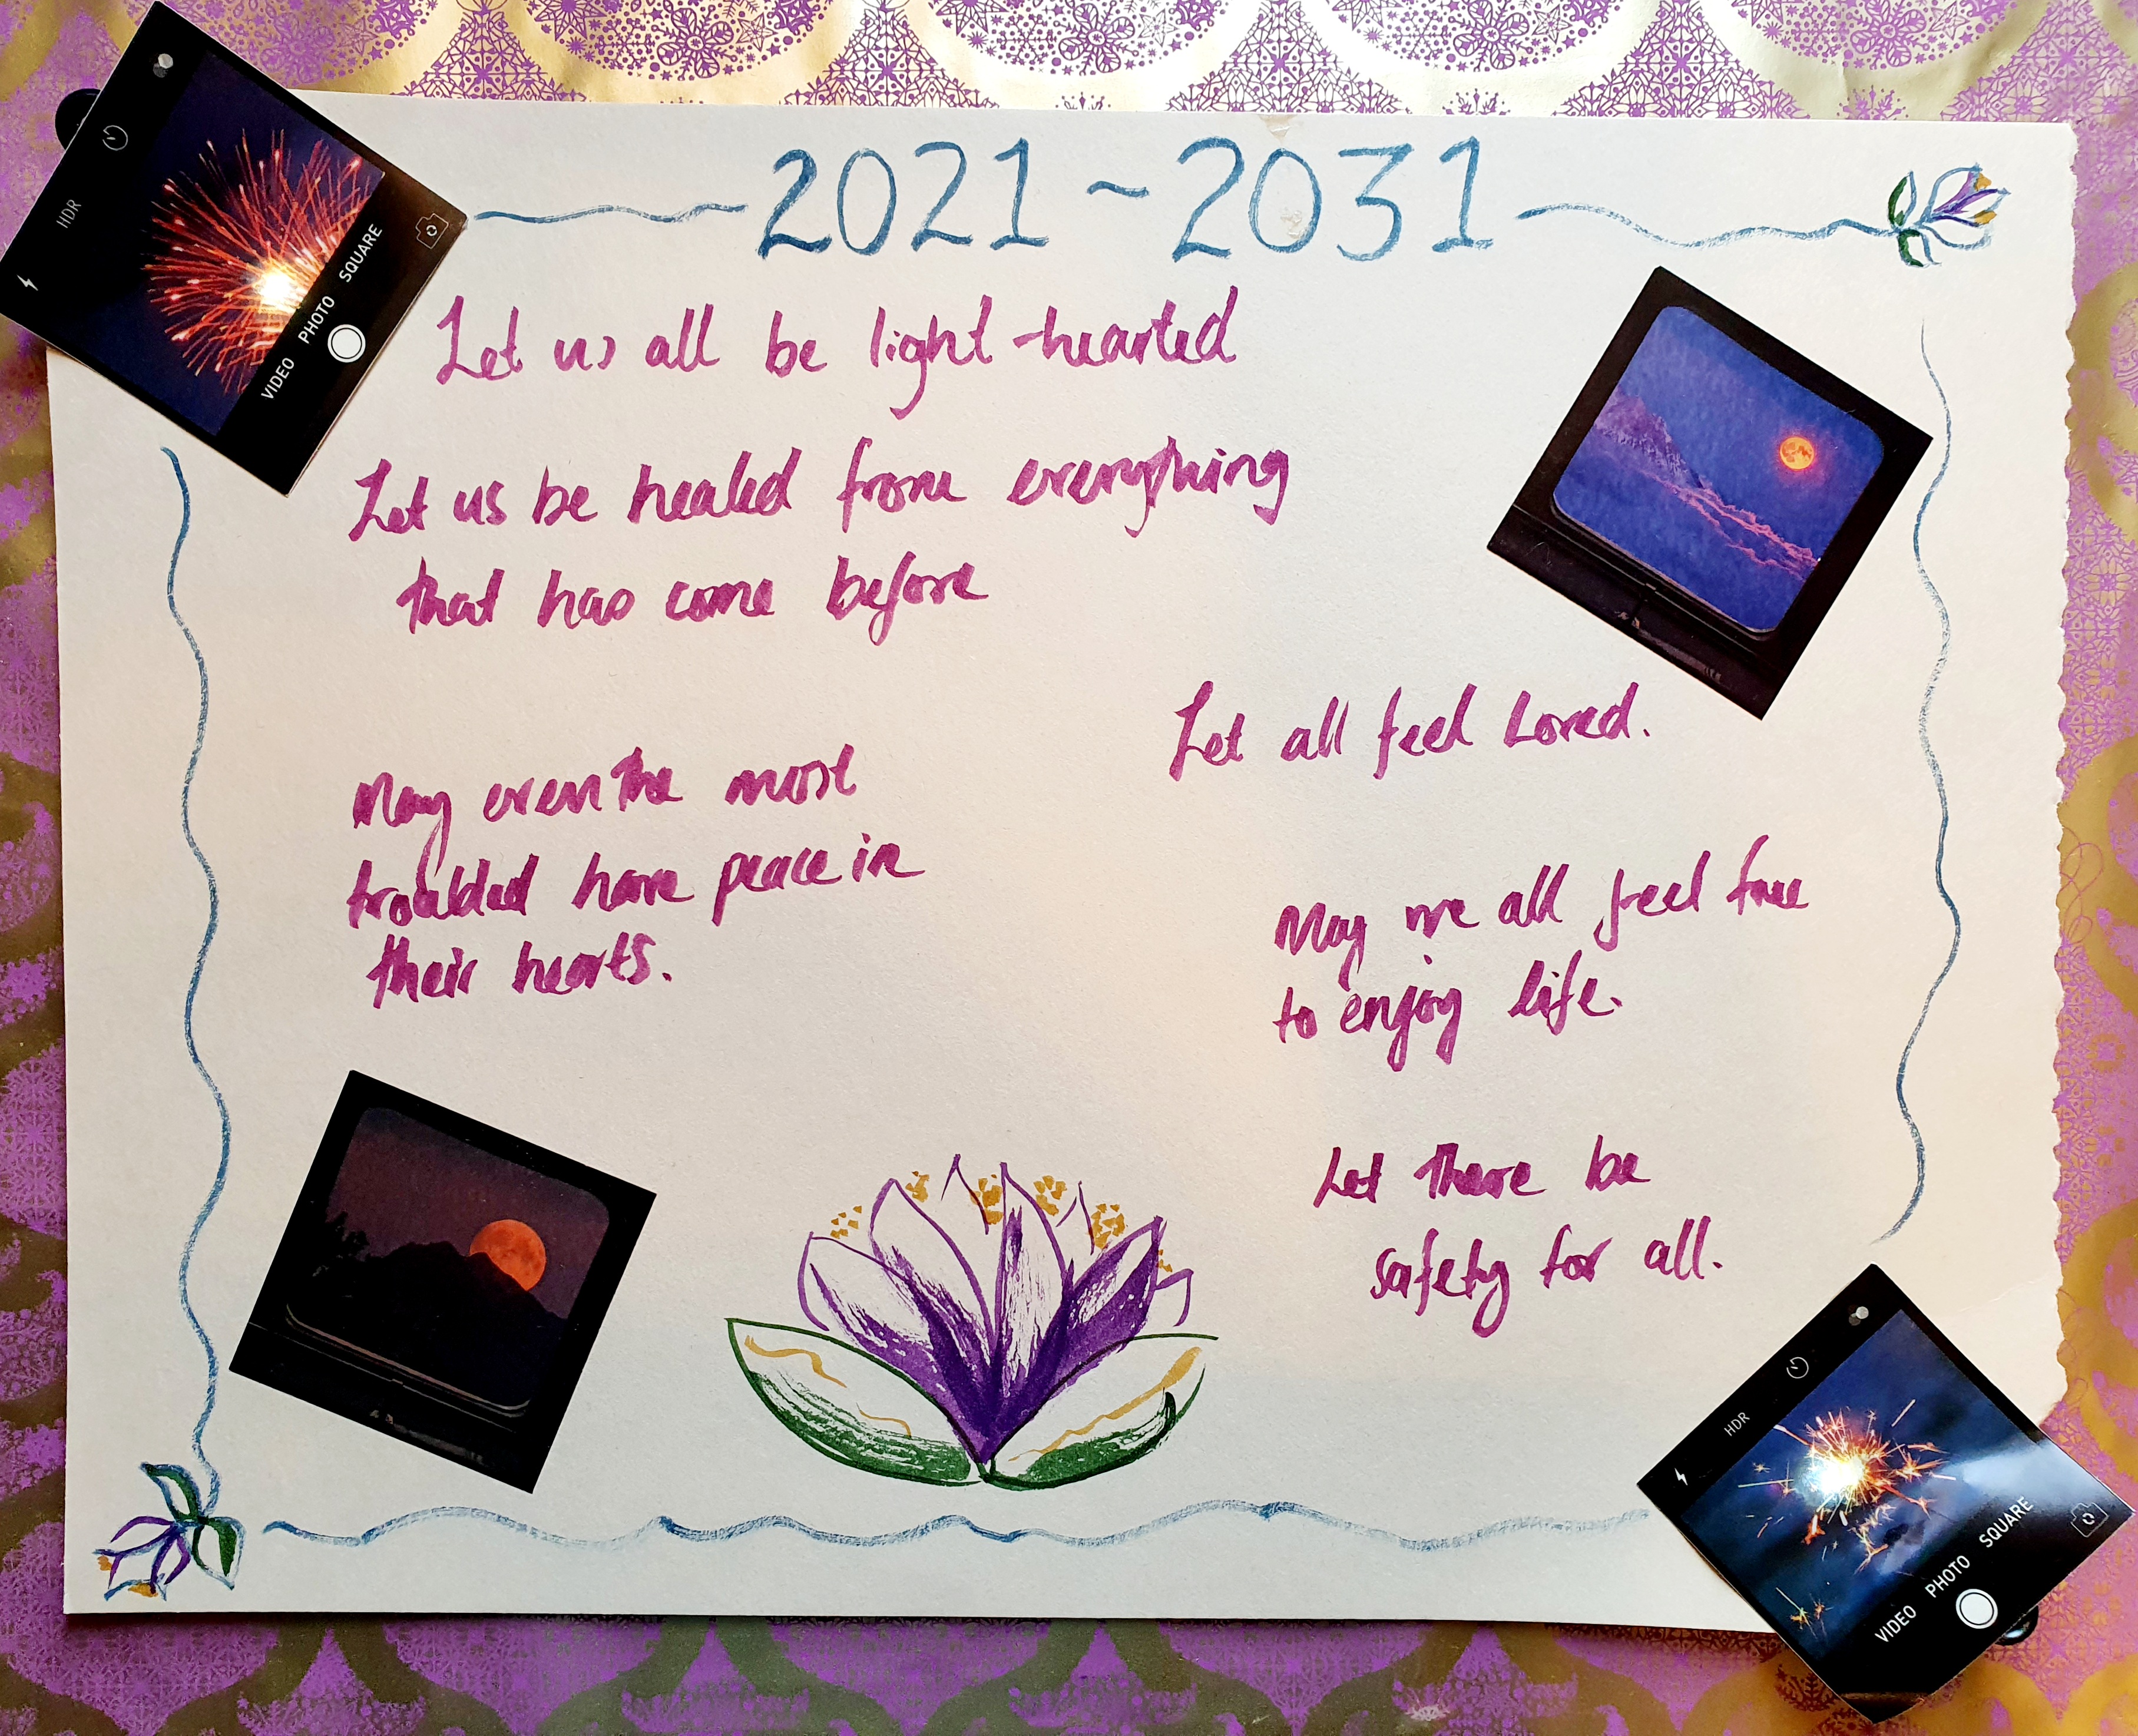 2021 ~ 2031
HDR
VIDEO PHOTO SQUARE
Let us all be light-hearted
Let us be healed from everything
that has come before
Let all feel Loved.
May even the most
troubled have peace in
their hearts.
May we all feel free
to enjoy life.
Let there be
safety for all.
HDR
VIDEO PHOTO SQUARE